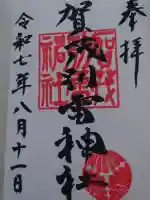 奉拝
賀茂別雷神社
令和七年八月十一日